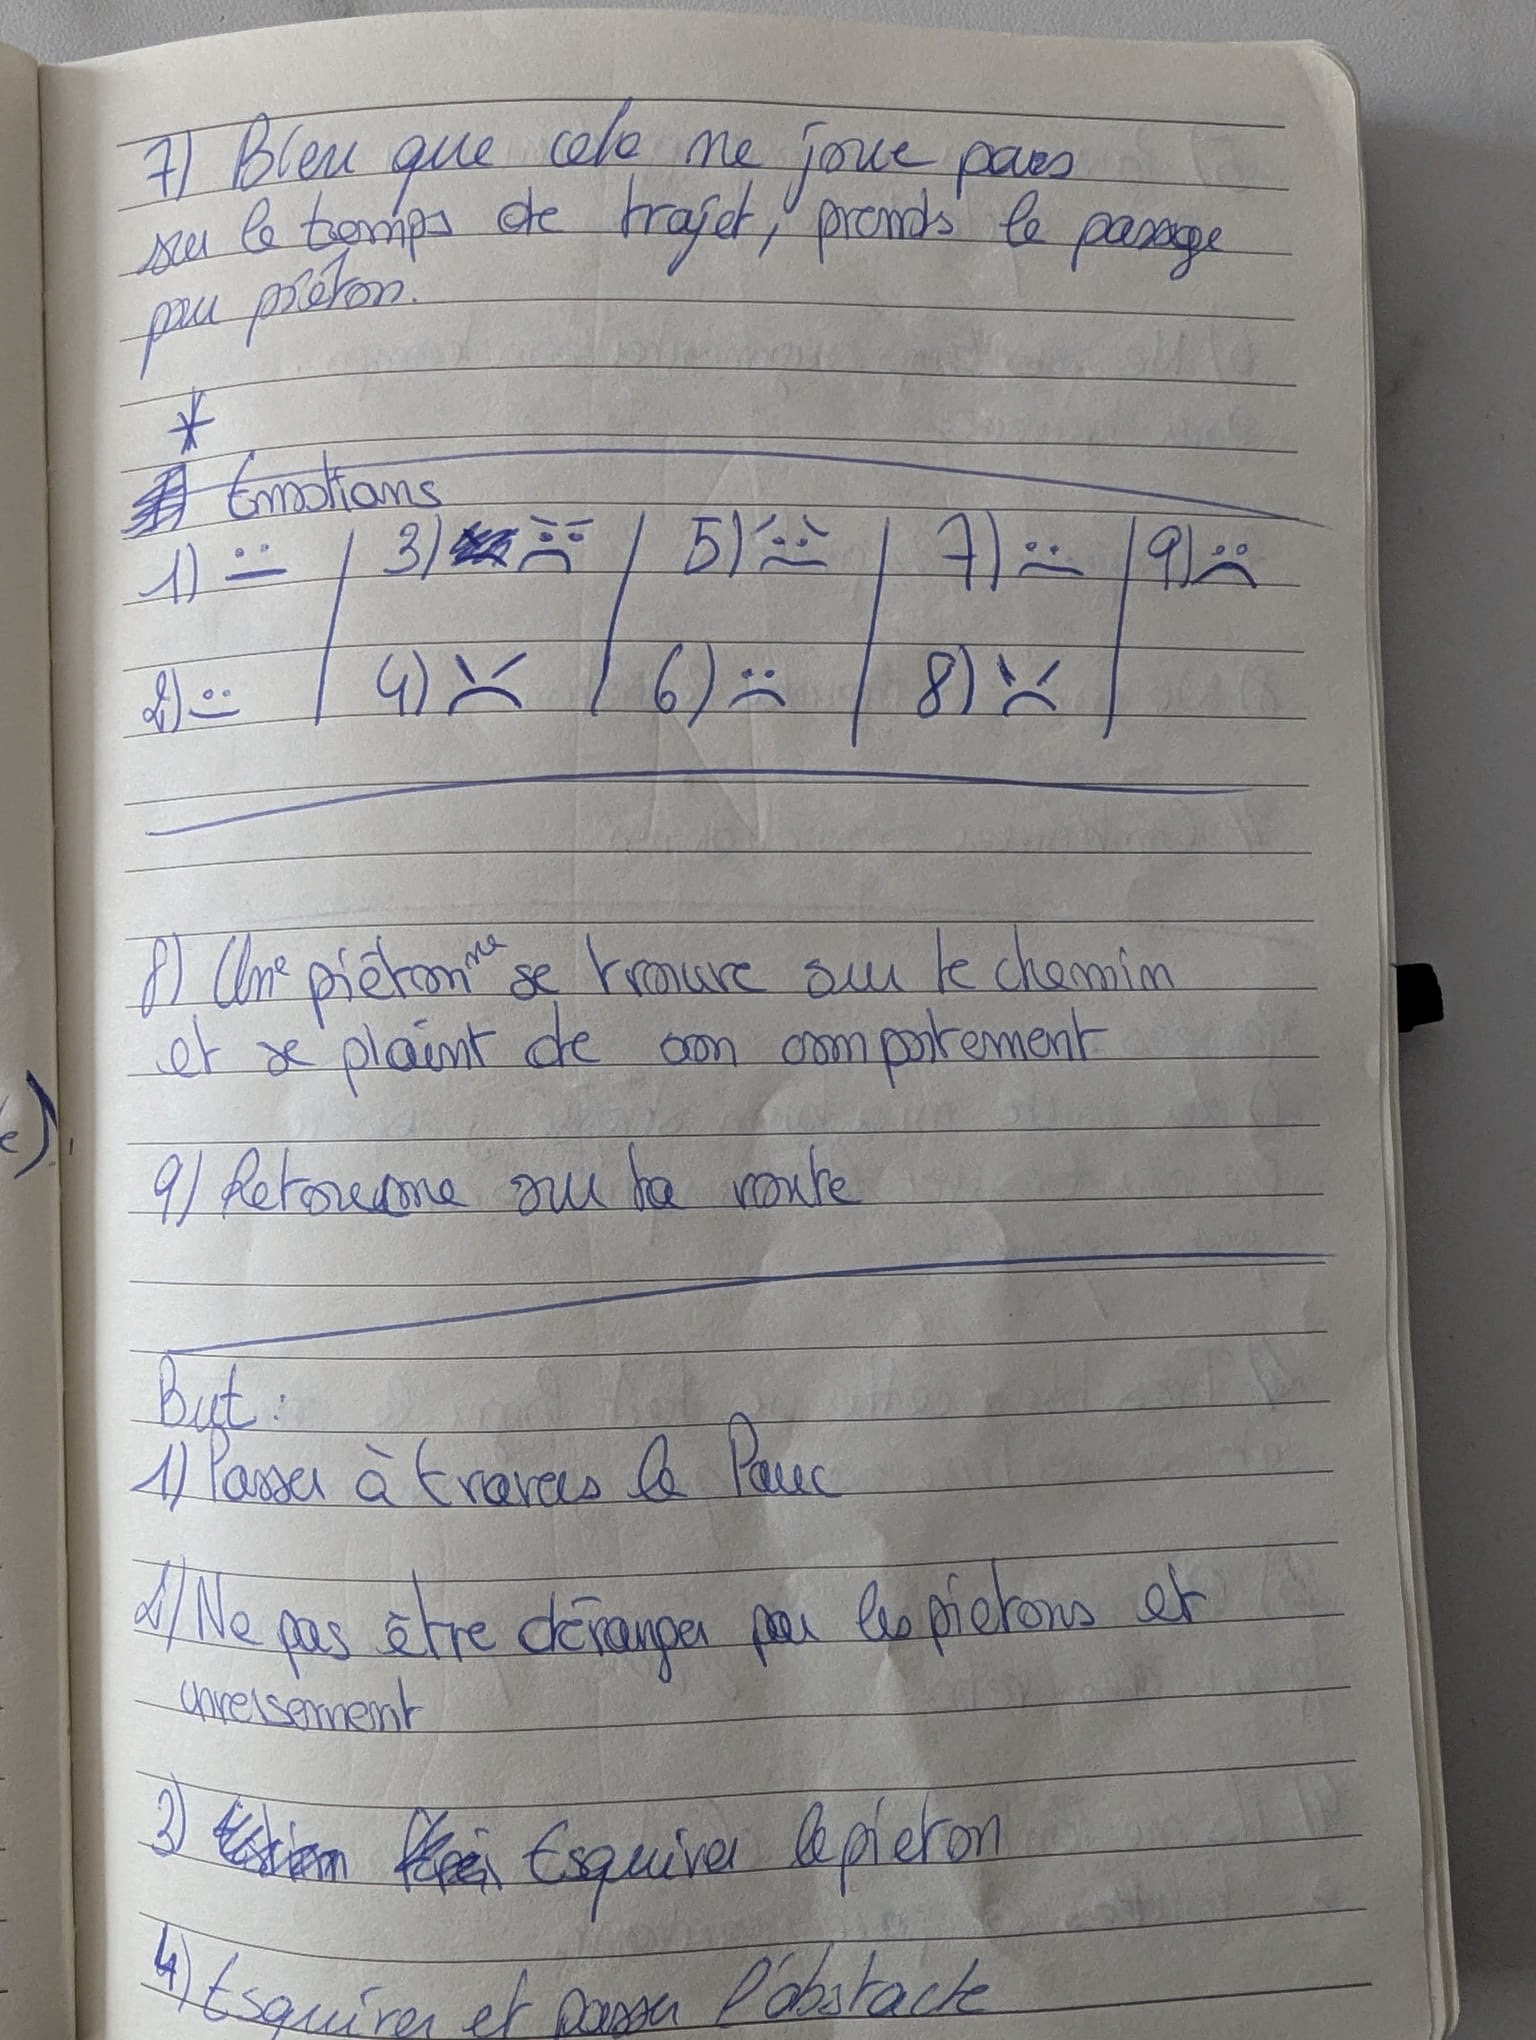 7) Bien que cela ne joue pas
sur le temps de trajet, prends le passage
pour piéton.
*
Emotions
1) 3) 5) 7) 9)
2) 4) 6) 8)
8) Une piétonne se trouve sur le chemin
et se plaint de son comportement
9) Retourne sur la route
But :
1) Passer à travers le Parc
2) Ne pas être déranger par les pietons et
inversement
3) Esquiver le pieton
4) Esquiver et passer l'obstacle